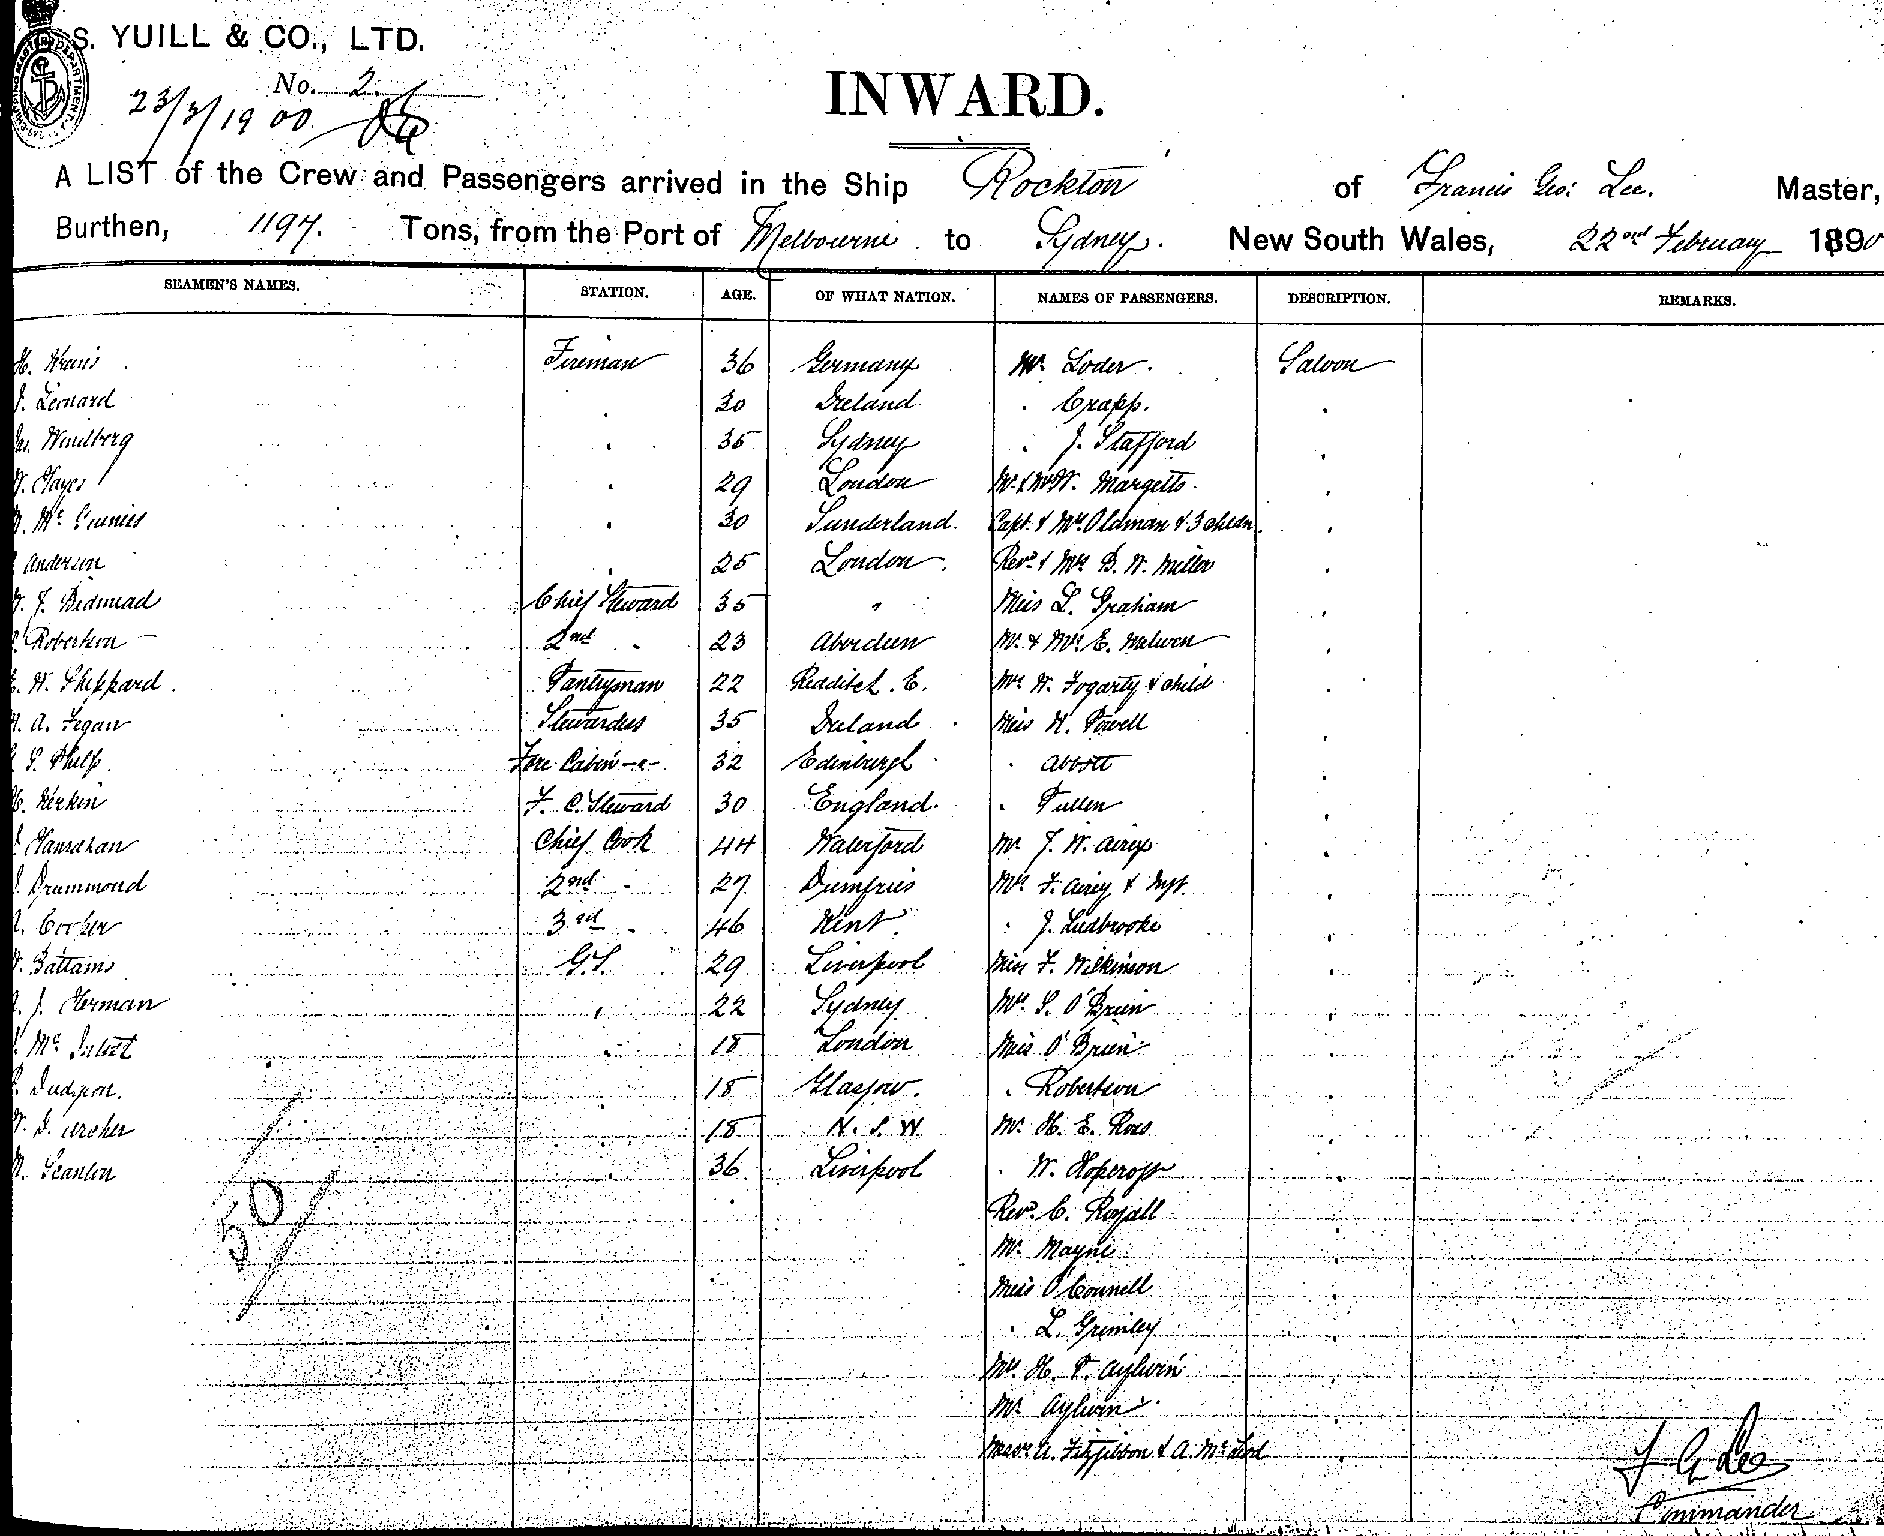 S. YUILL & CO., LTD.
No. 2.
23/2/1900
INWARD.
A LIST of the Crew and Passengers arrived in the Ship Rockton of Francis Geo: Lee. Master,
Burthen, 1197. Tons, from the Port of Melbourne to Sydney. New South Wales, 22nd February 1900
SEAMEN'S NAMES. STATION. AGE. OF WHAT NATION. NAMES OF PASSENGERS. DESCRIPTION. REMARKS.
H. Fireman 36 Germany Mr. Loder. Saloon
J. Leonard " 30 Ireland " Crapp. "
Windberg " 35 Sydney " J. Stafford "
W. Hayes " 29 London Mr. & Mrs W. Margetts. "
Mc " 30 Sunderland. Capt. & Mrs Oldman & 3 childn. "
Anderson " 25 London. Revd. & Mrs B. W. Miller "
W. J. Chief Steward 35 " Miss L. Graham "
Robertson 2nd " 23 Aberdeen Mr. & Mrs E. "
E. W. Sheppard. Pantryman 22 Redditch. E. Mrs W. Fogarty & child "
A. Fegan Stewardess 35 Ireland Miss H. Powell "
Philp. Fore Cabin -"- 32 Edinburgh " Abbott "
H. F. C. Steward 30 England. " Pullen "
Hanrahan Chief Cook 44 Waterford Mr. J. W. Airey "
Drummond 2nd " 27 Dumfries Mrs F. Airey & Inft. "
Cocker 3rd " 46 Kent. " J. Ludbrooke "
W. Battams G.S. 29 Liverpool Miss F. Wilkinson "
J. Herman " 22 Sydney Mrs S. O'Brien "
Mc " 18 London Miss O'Brien "
Dudgeon. " 18 Glasgow. " Robertson "
W. D. Archer " 18 N. S. W Mr. H. E. Ross "
M. Scanlon " 36 Liverpool " W. "
50 Revd. C. "
Mr. Mayne "
Miss O'Connell "
" L. Grimley "
Mrs H. P. Aylwin "
Mr. Aylwin "
Fitzgibbon & A. McLeod "
F G Lee
Commander